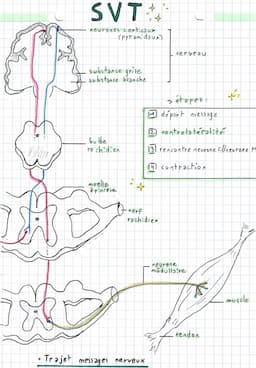 SVT
neurones corticaux
(pyramidaux)
cerveau
substance grise
substance blanche
étapes :
1 départ message
2 controlatéralité
3 rencontre neurone C/neurone M
4 contraction
bulbe
rachidien
moelle
épinière
nerf
rachidien
neurone
médullaire
muscle
tendon
• Trajet messages nerveux